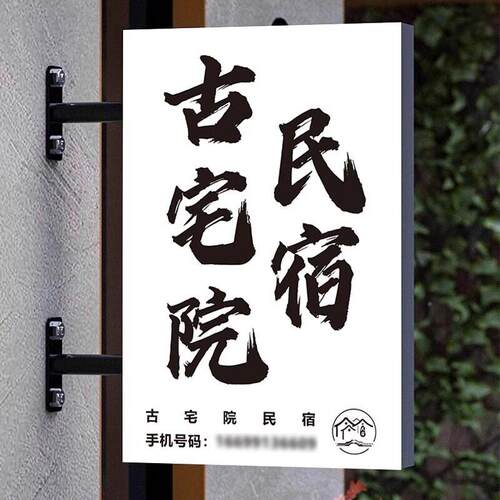 古宅院
民宿
古宅院民宿
手机号码：